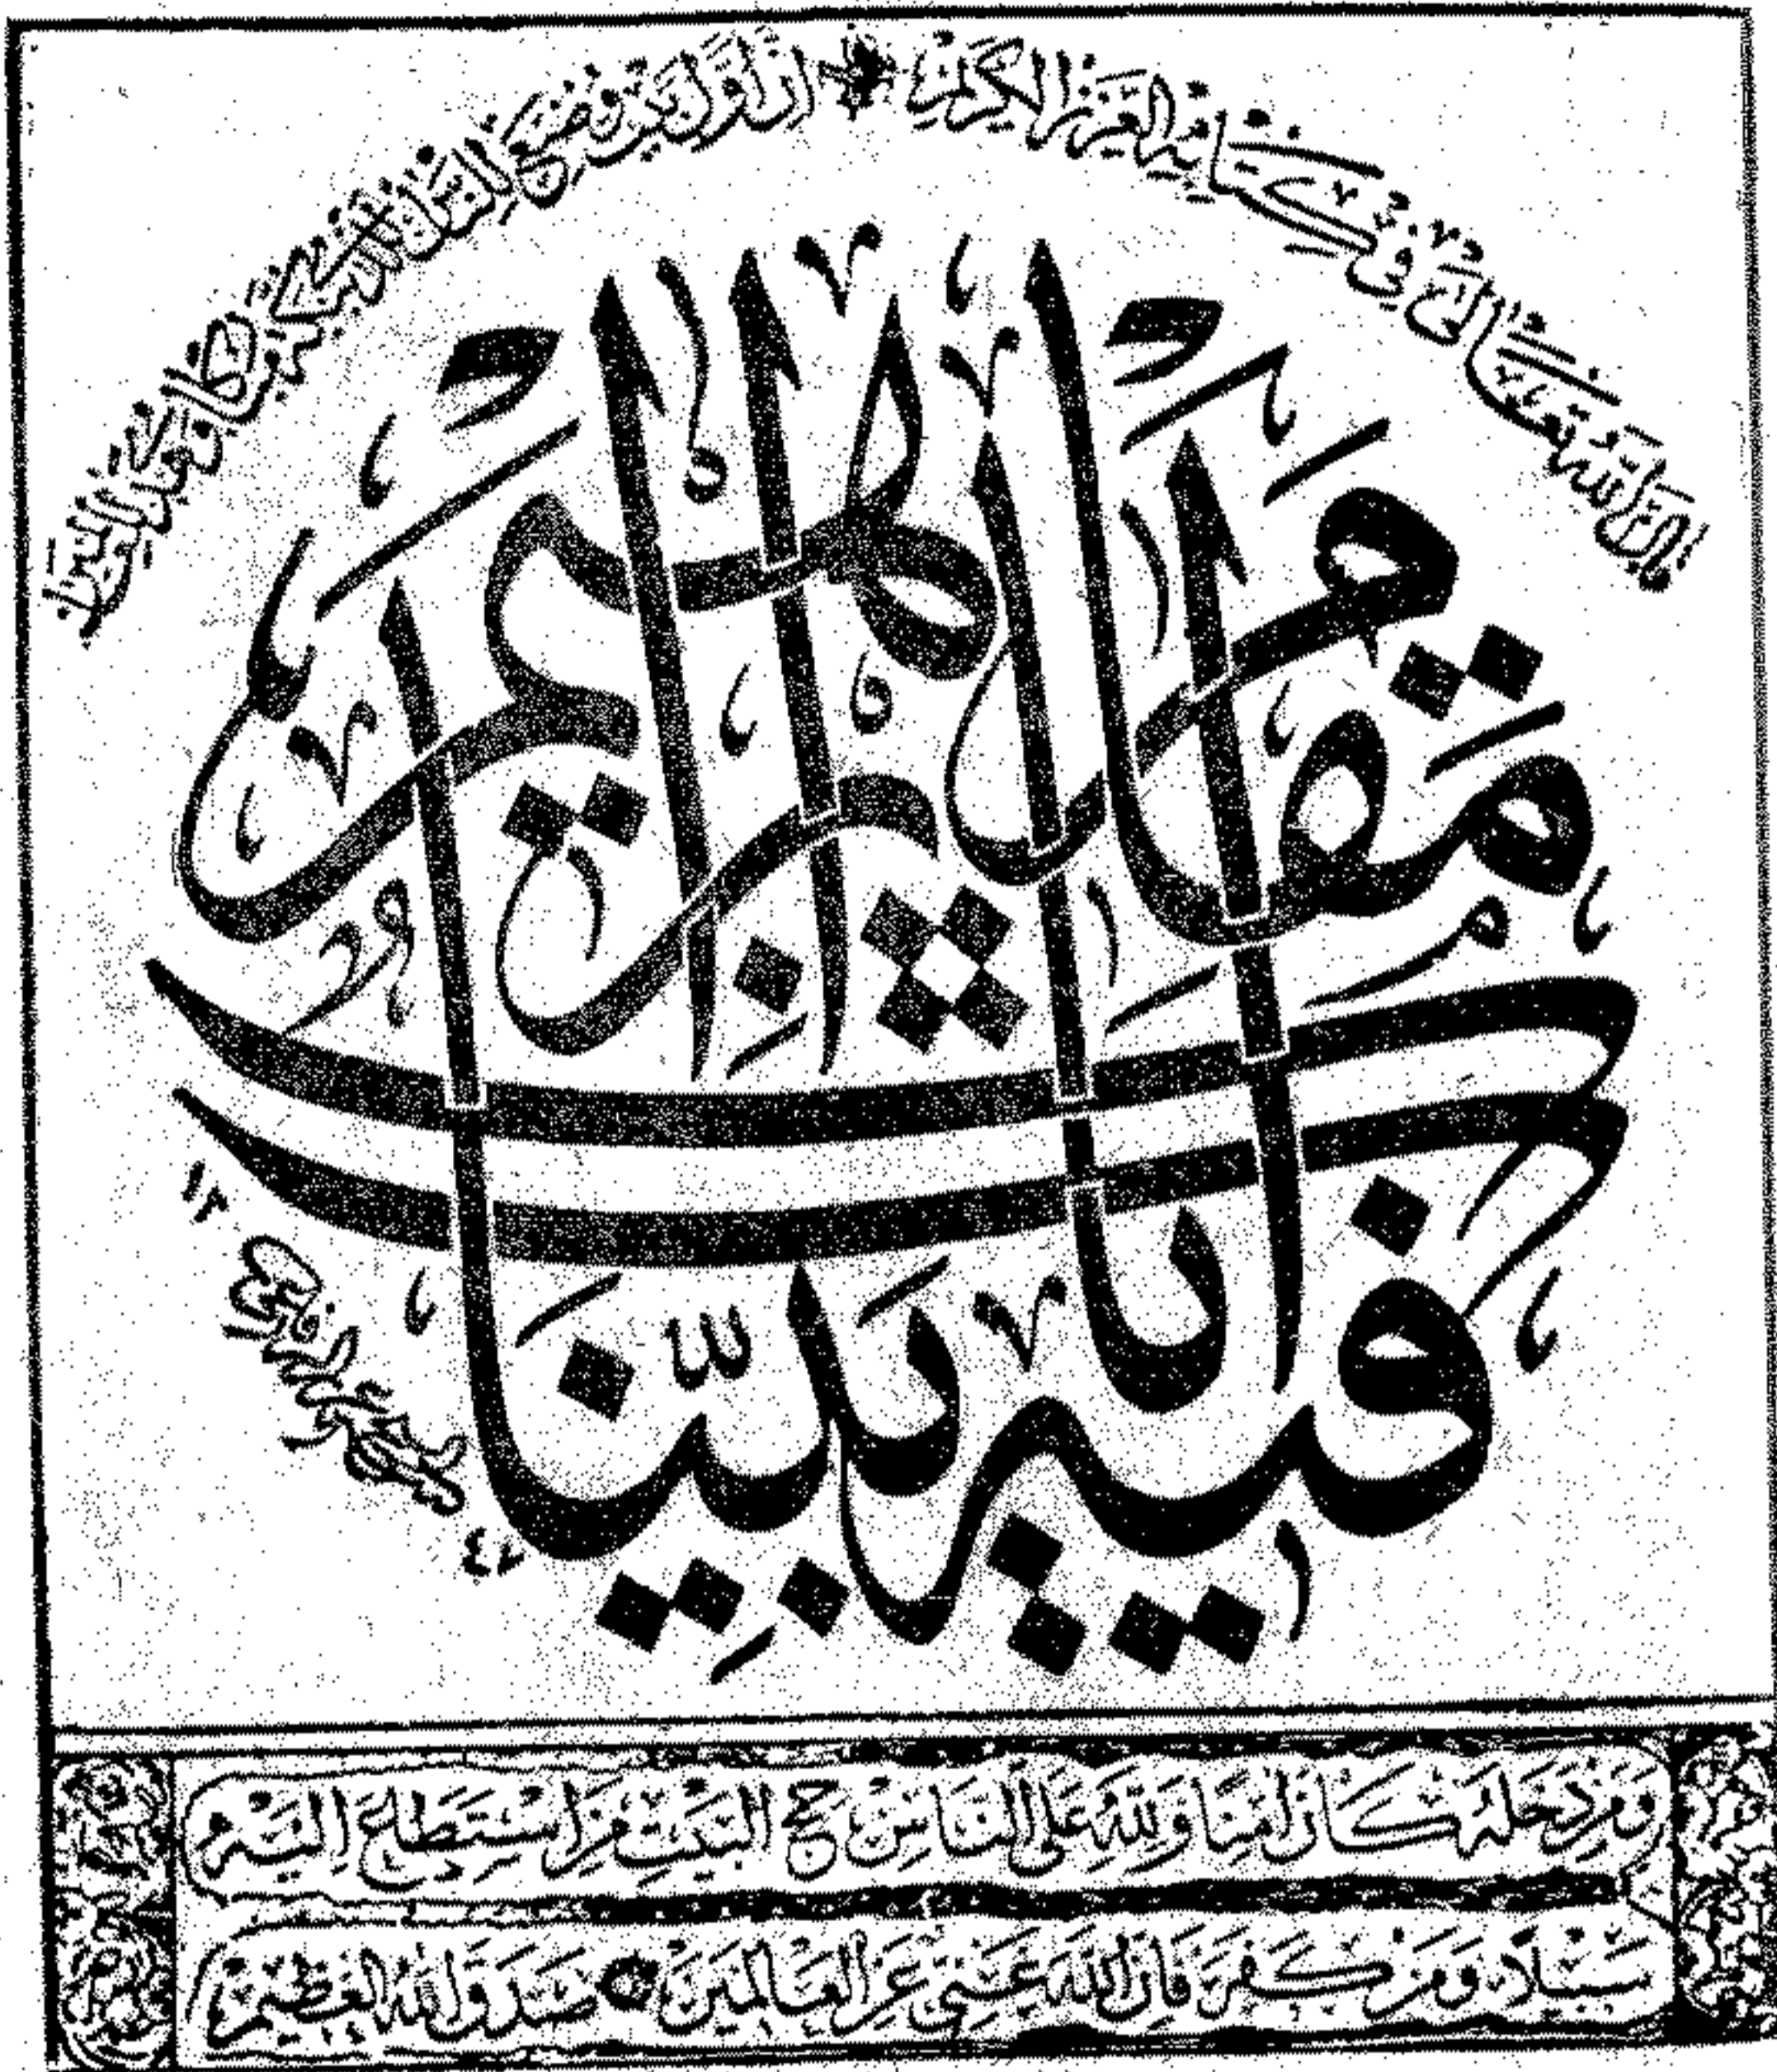 قال الله تعالى في كتابه العزيز الكريم * إن أول بيت وضع للناس للذي ببكة مباركا وهدى للعالمين
فِيهِ آيَاتٌ بَيِّنَاتٌ مَقَامُ إِبْرَاهِيمَ
وَمَنْ دَخَلَهُ كَانَ آمِنًا وَلِلَّهِ عَلَى النَّاسِ حِجُّ الْبَيْتِ مَنِ اسْتَطَاعَ إِلَيْهِ
سَبِيلًا وَمَنْ كَفَرَ فَإِنَّ اللَّهَ غَنِيٌّ عَنِ الْعَالَمِينَ * صَدَقَ اللَّهُ الْعَظِيمُ